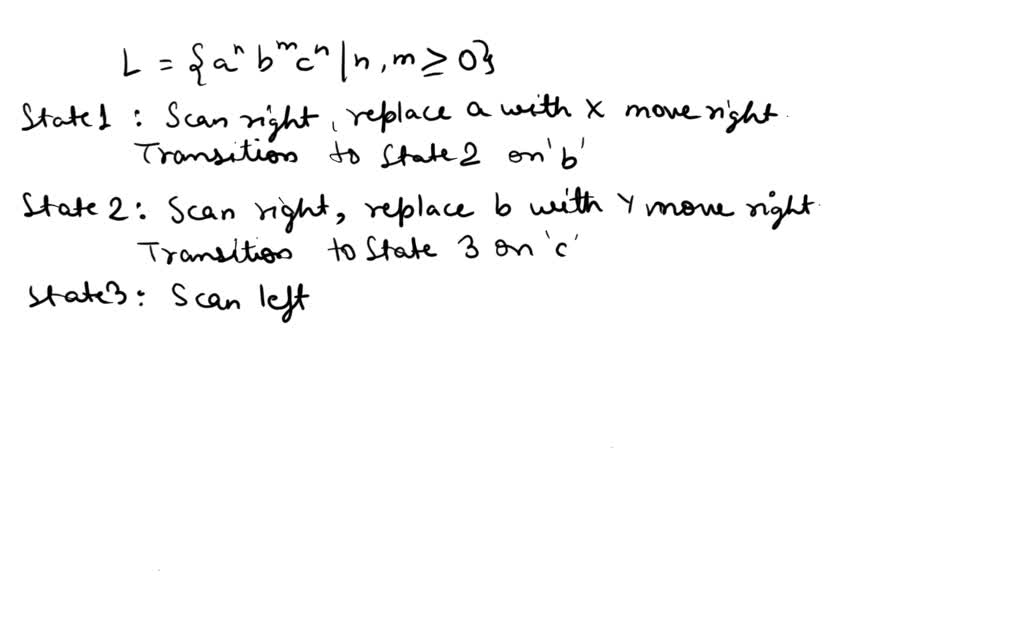 L = {aⁿ bᵐ cⁿ | n, m ≥ 0}
State 1 : Scan right, replace a with X move right.
Transition to State 2 on 'b'
State 2 : Scan right, replace b with Y move right.
Transition to State 3 on 'c'
State 3 : Scan left